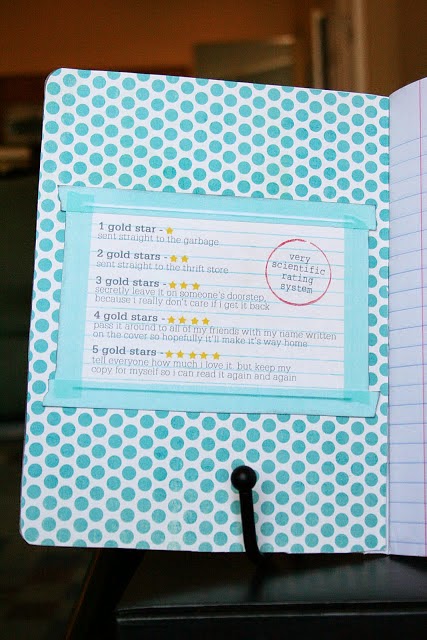 1 gold star - ★
sent straight to the garbage
2 gold stars - ★★
sent straight to the thrift store
3 gold stars - ★★★
secretly leave it on someone's doorstep,
because i really don't care if i get it back
4 gold stars - ★★★★
pass it around to all of my friends with my name written
on the cover so hopefully it'll make it's way home
5 gold stars - ★★★★★
tell everyone how much i love it but keep my
copy for myself so i can read it again and again
very
scientific
rating
system